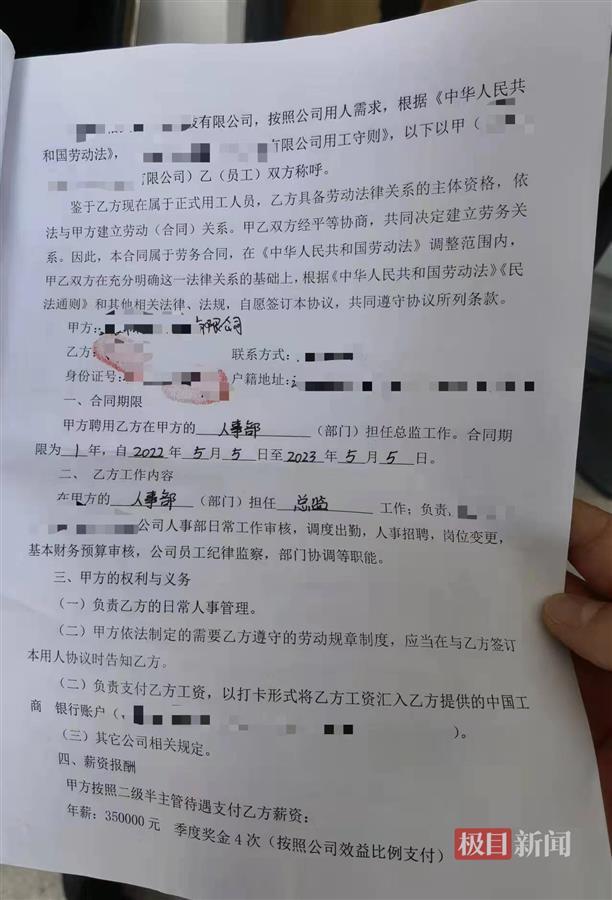 有限公司，按照公司用人需求，根据《中华人民共
和国劳动法》， 有限公司用工守则》，以下以甲（
有限公司）乙（员工）双方称呼。
鉴于乙方现在属于正式用工人员，乙方具备劳动法律关系的主体资格，依
法与甲方建立劳动（合同）关系。甲乙双方经平等协商，共同决定建立劳务关
系。因此，本合同属于劳务合同，在《中华人民共和国劳动法》调整范围内，
甲乙双方在充分明确这一法律关系的基础上，根据《中华人民共和国劳动法》《民
法通则》和其他相关法律、法规，自愿签订本协议，共同遵守协议所列条款。
甲方： 有限公司
乙方： 联系方式：
身份证号： 户籍地址：
一、合同期限
甲方聘用乙方在甲方的 人事部 （部门）担任总监工作。合同期
限为 1 年，自 2022 年 5 月 5 日至 2023 年 5 月 5 日。
二、 乙方工作内容
在甲方的 人事部 （部门）担任 总监 工作；负责，
公司人事部日常工作审核，调度出勤，人事招聘，岗位变更，
基本财务预算审核，公司员工纪律监察，部门协调等职能。
三、甲方的权利与义务
（一）负责乙方的日常人事管理。
（二）甲方依法制定的需要乙方遵守的劳动规章制度，应当在与乙方签订
本用人协议时告知乙方。
（二）负责支付乙方工资，以打卡形式将乙方工资汇入乙方提供的中国工
商 银行账户（， ）。
（三）其它公司相关规定。
四、薪资报酬
甲方按照二级半主管待遇支付乙方薪资：
年薪：350000 元 季度奖金 4 次（按照公司效益比例支付）
极目新闻